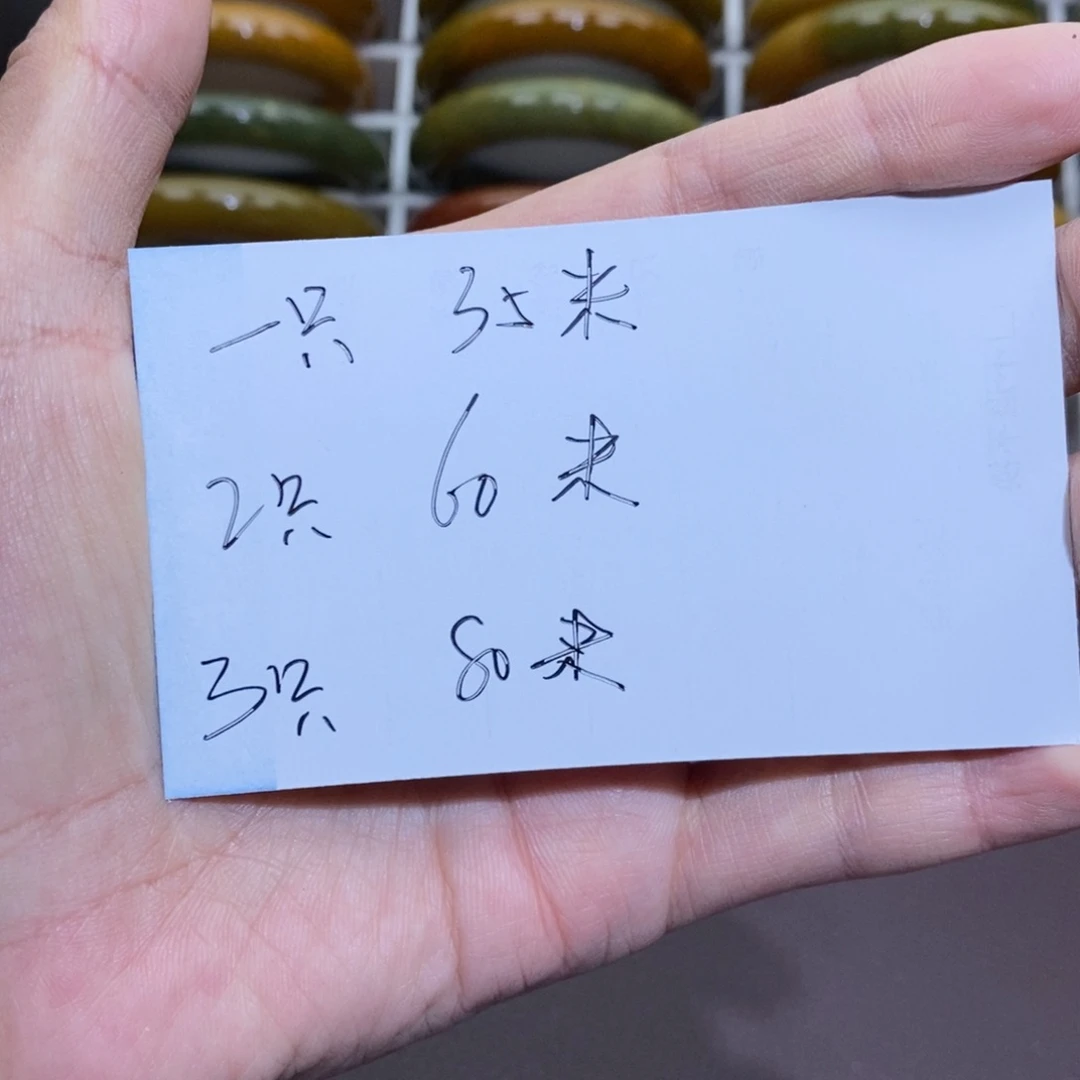 一只 35米
2只 60米
3只 80米